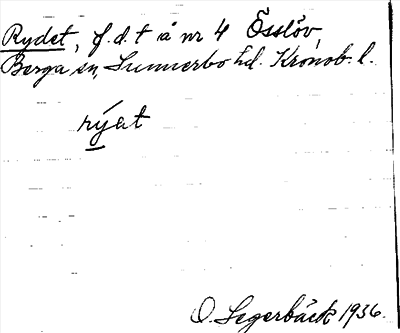 Rydet, f.d.t å nr 4 Össlöv,
Berga sn, Sunnerbo hd. Kronob. l.
rýat
O. Segerbäck 1936.